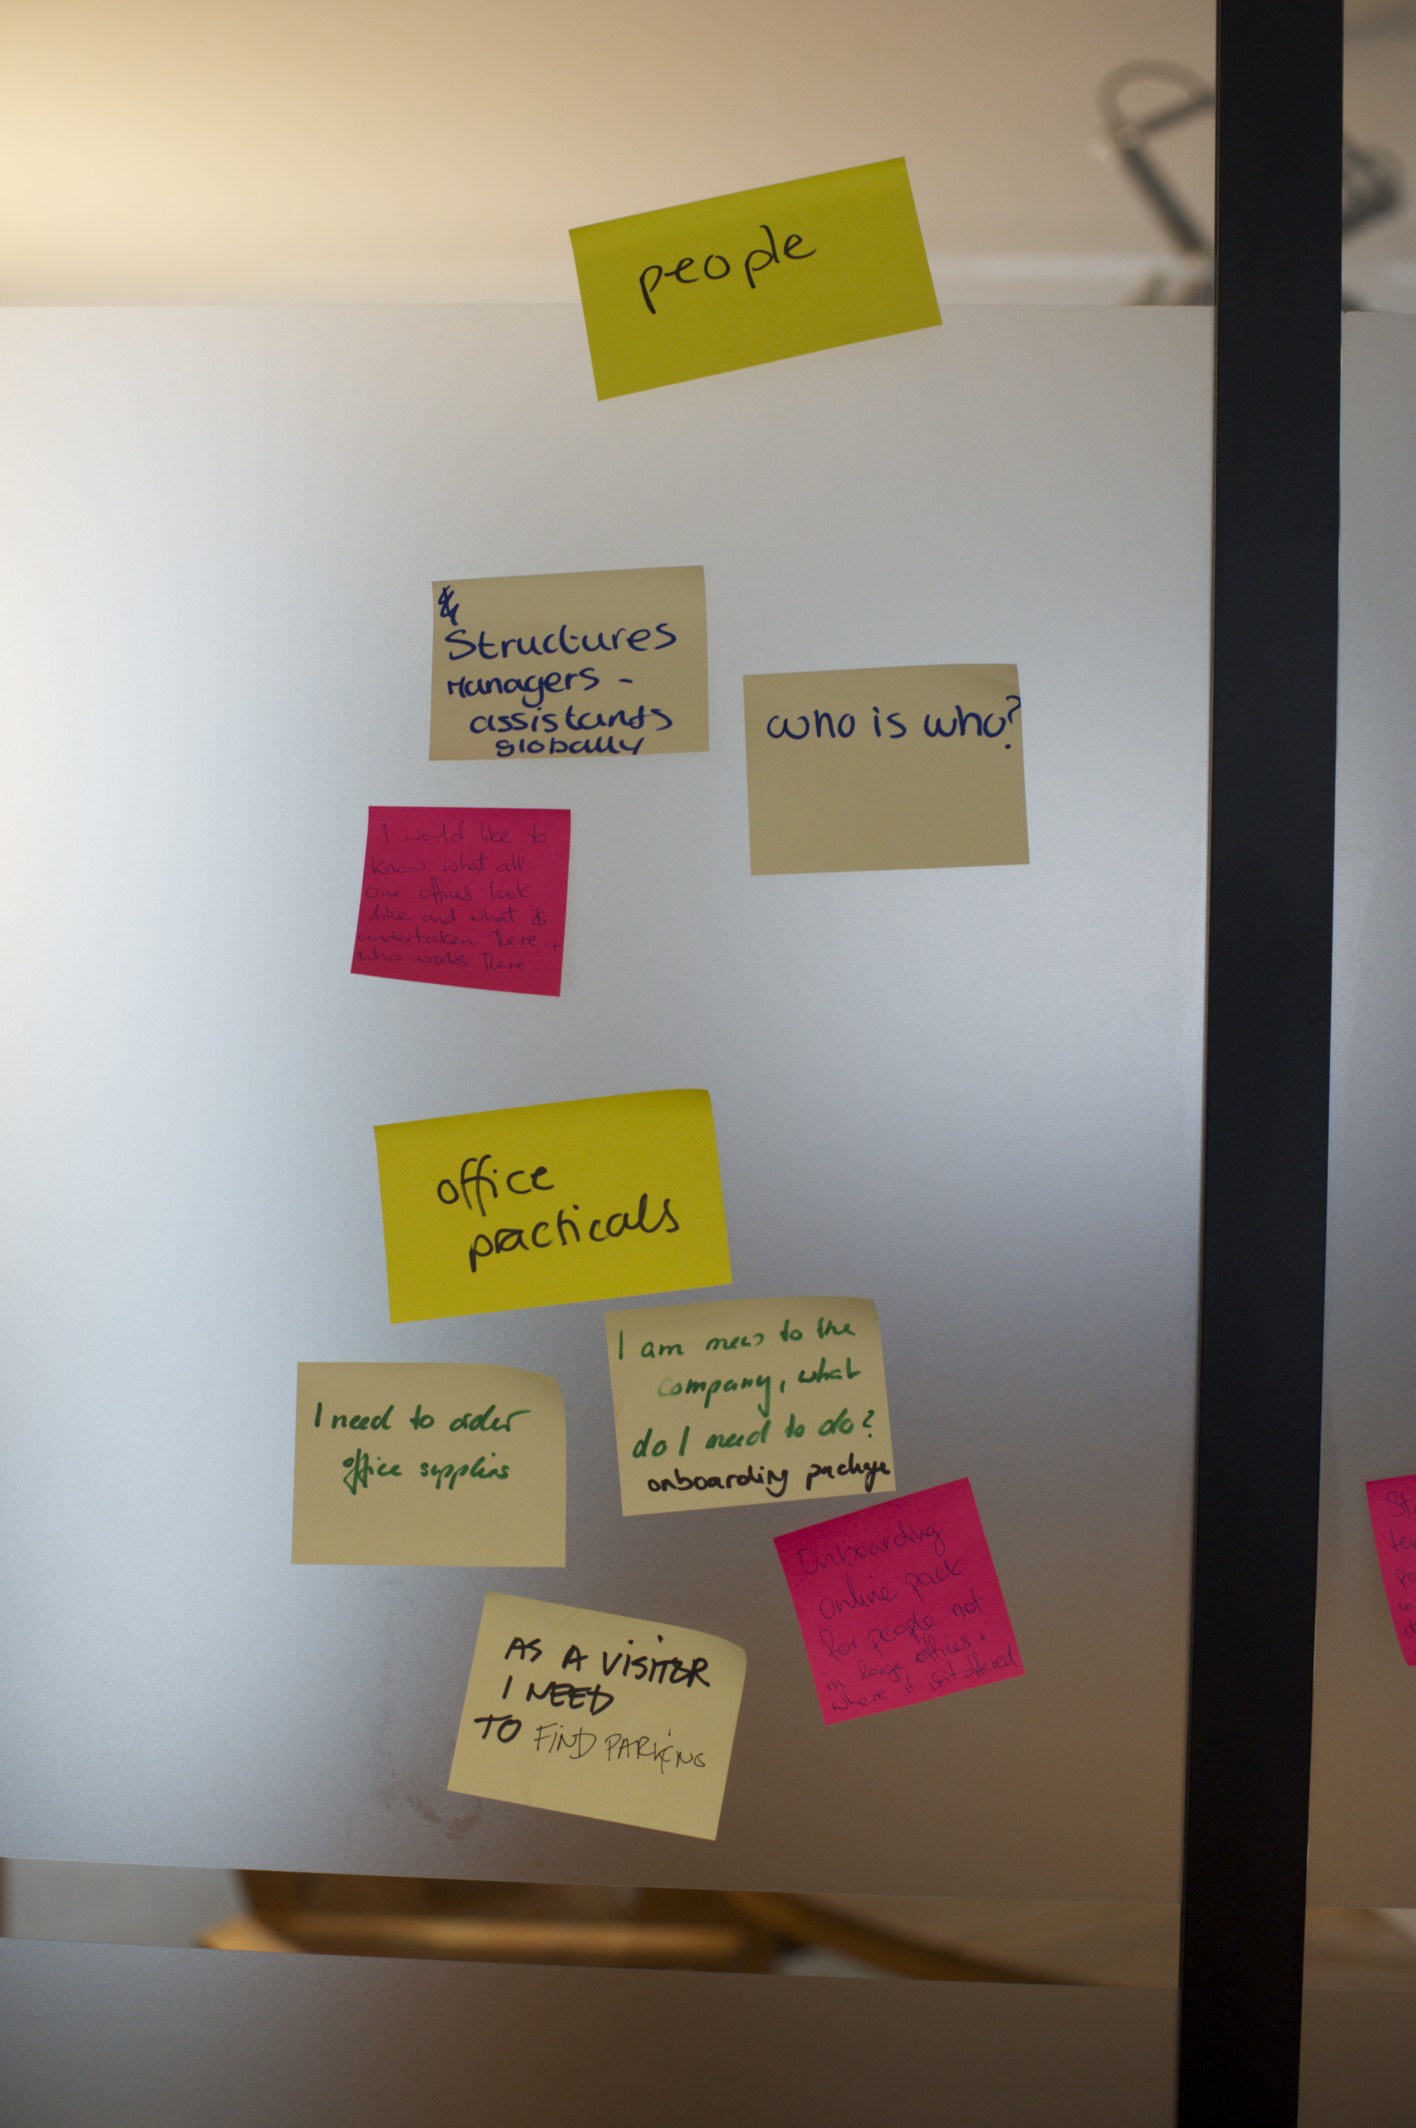 people
&
Structures
Managers -
assistants
globally
who is who?
I would like to
know what all
our offices look
like and what is
undertaken there +
who works there
office
practicals
I am new to the
company, what
do I need to do?
onboarding package
I need to order
office supplies
Onboarding
online pack
for people not
in large offices +
where it isn't offered
AS A VISITER
I NEED
TO FIND PARKING
St
te
in